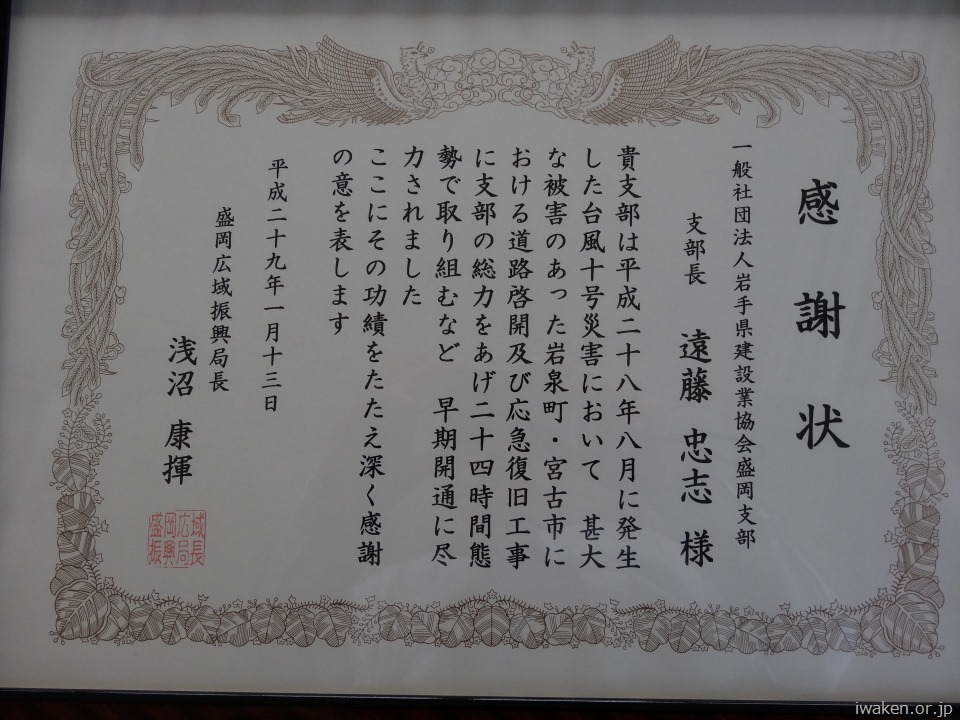 感謝状
一般社団法人岩手県建設業協会盛岡支部
支部長 遠藤 忠志 様
貴支部は平成二十八年八月に発生
した台風十号災害において 甚大
な被害のあった岩泉町・宮古市に
おける道路啓開及び応急復旧工事
に支部の総力をあげ二十四時間態
勢で取り組むなど 早期開通に尽
力されました
ここにその功績をたたえ深く感謝
の意を表します
平成二十九年一月十三日
盛岡広域振興局長
浅沼 康揮
盛岡広域振興局長
iwaken.or.jp